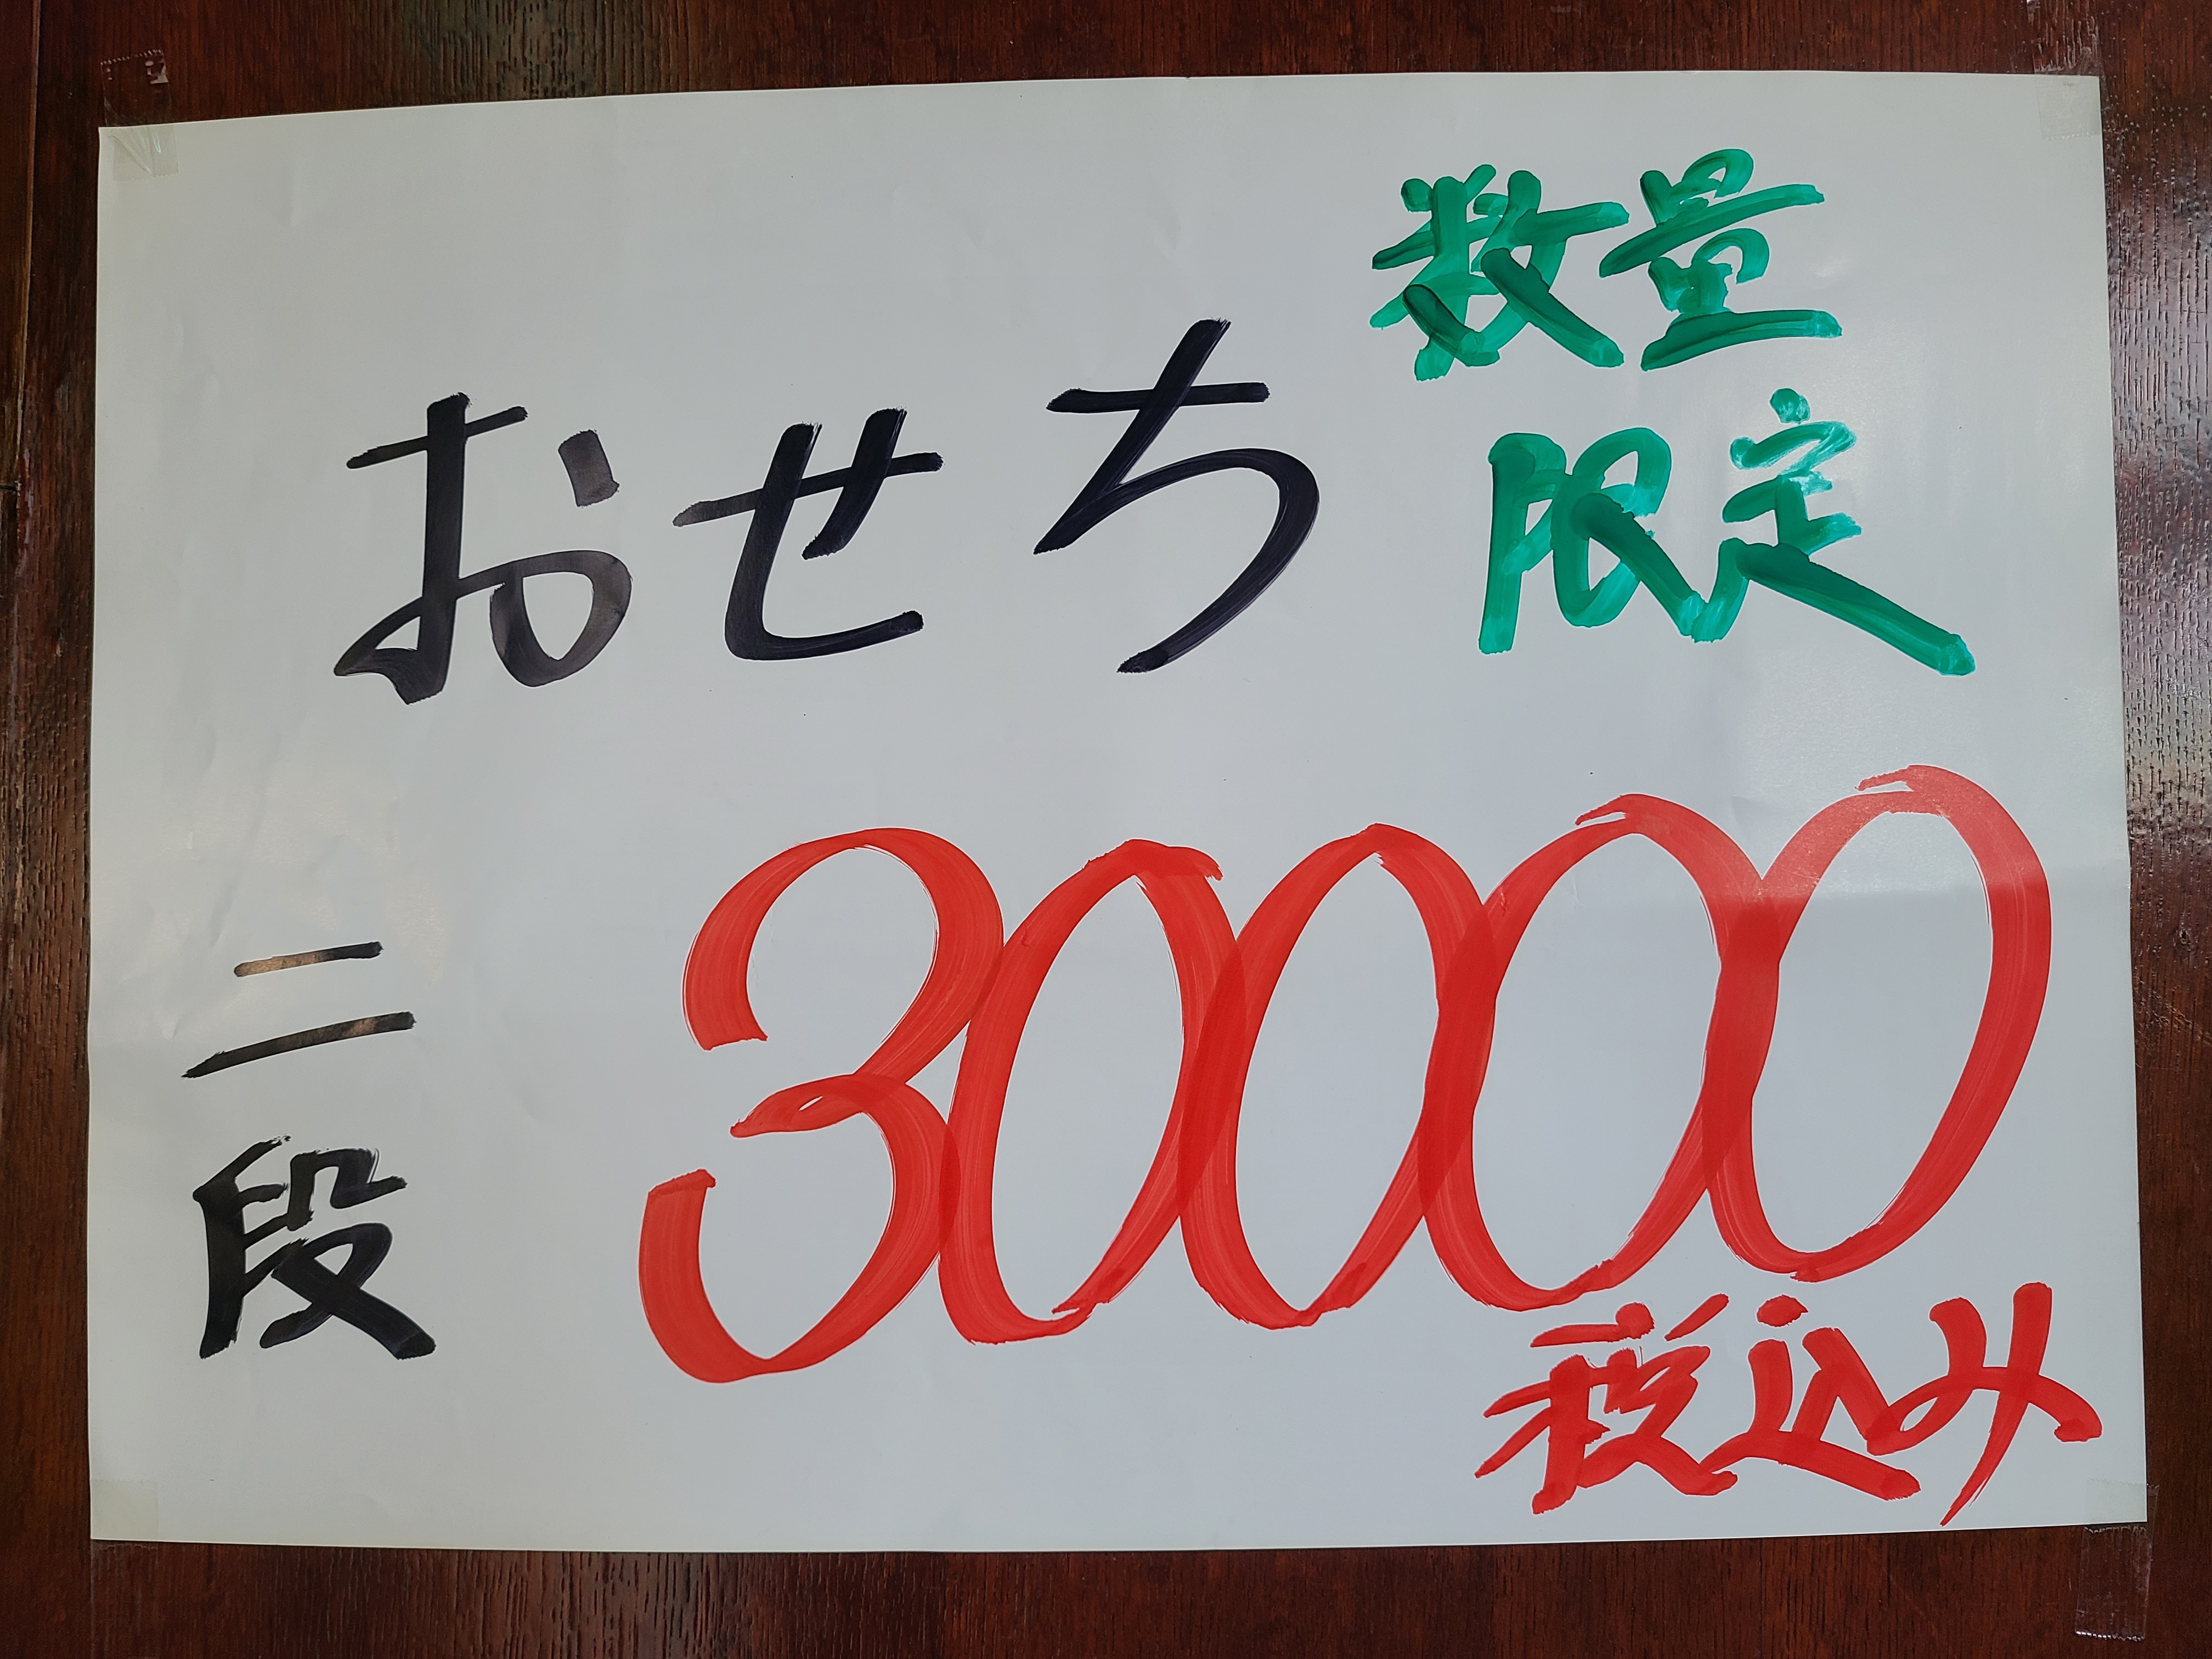 数量
限定
おせち
二段
30000
税込み